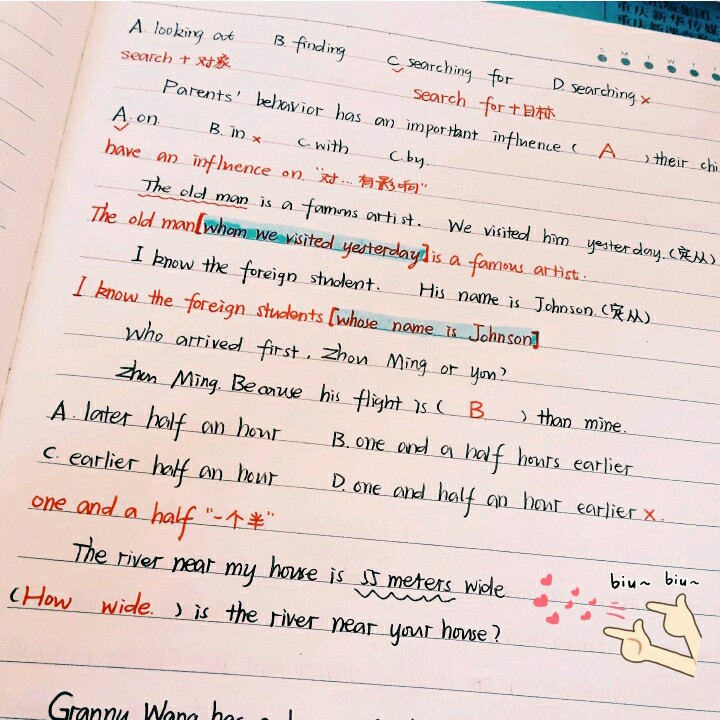 A. looking at B. finding C. searching for D. searching ×
search + 对象 search for + 目标
Parents' behavior has an important influence ( A ) their chi
A. on B. in × C. with C. by.
have an influence on "对…有影响"
The old man is a famous artist. We visited him yesterday. (定从)
The old man [whom we visited yesterday] is a famous artist.
I know the foreign student. His name is Johnson. (定从)
I know the foreign students [whose name is Johnson]
Who arrived first, Zhou Ming or you?
Zhou Ming. Because his flight is ( B ) than mine.
A. later half an hour B. one and a half hours earlier
C. earlier half an hour D. one and half an hour earlier ×.
one and a half "一个半"
The river near my house is 55 meters wide
(How wide. ) is the river near your house?
biu~ biu~
Granny Wang has a